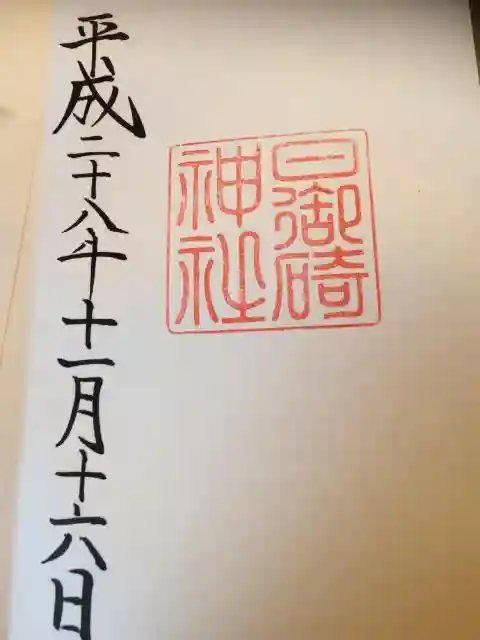 日御碕
神社
平成二十八年十一月十六日